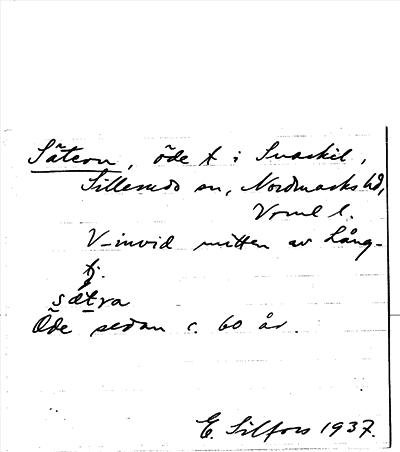 Sätern, öde t i Svaskil,
Silleruds sn, Nordmarks hd,
Vrml l.
V-invid mitten av Lång-
tj.
sætra
Öde sedan c. 60 år.
E. Silfors 1937.